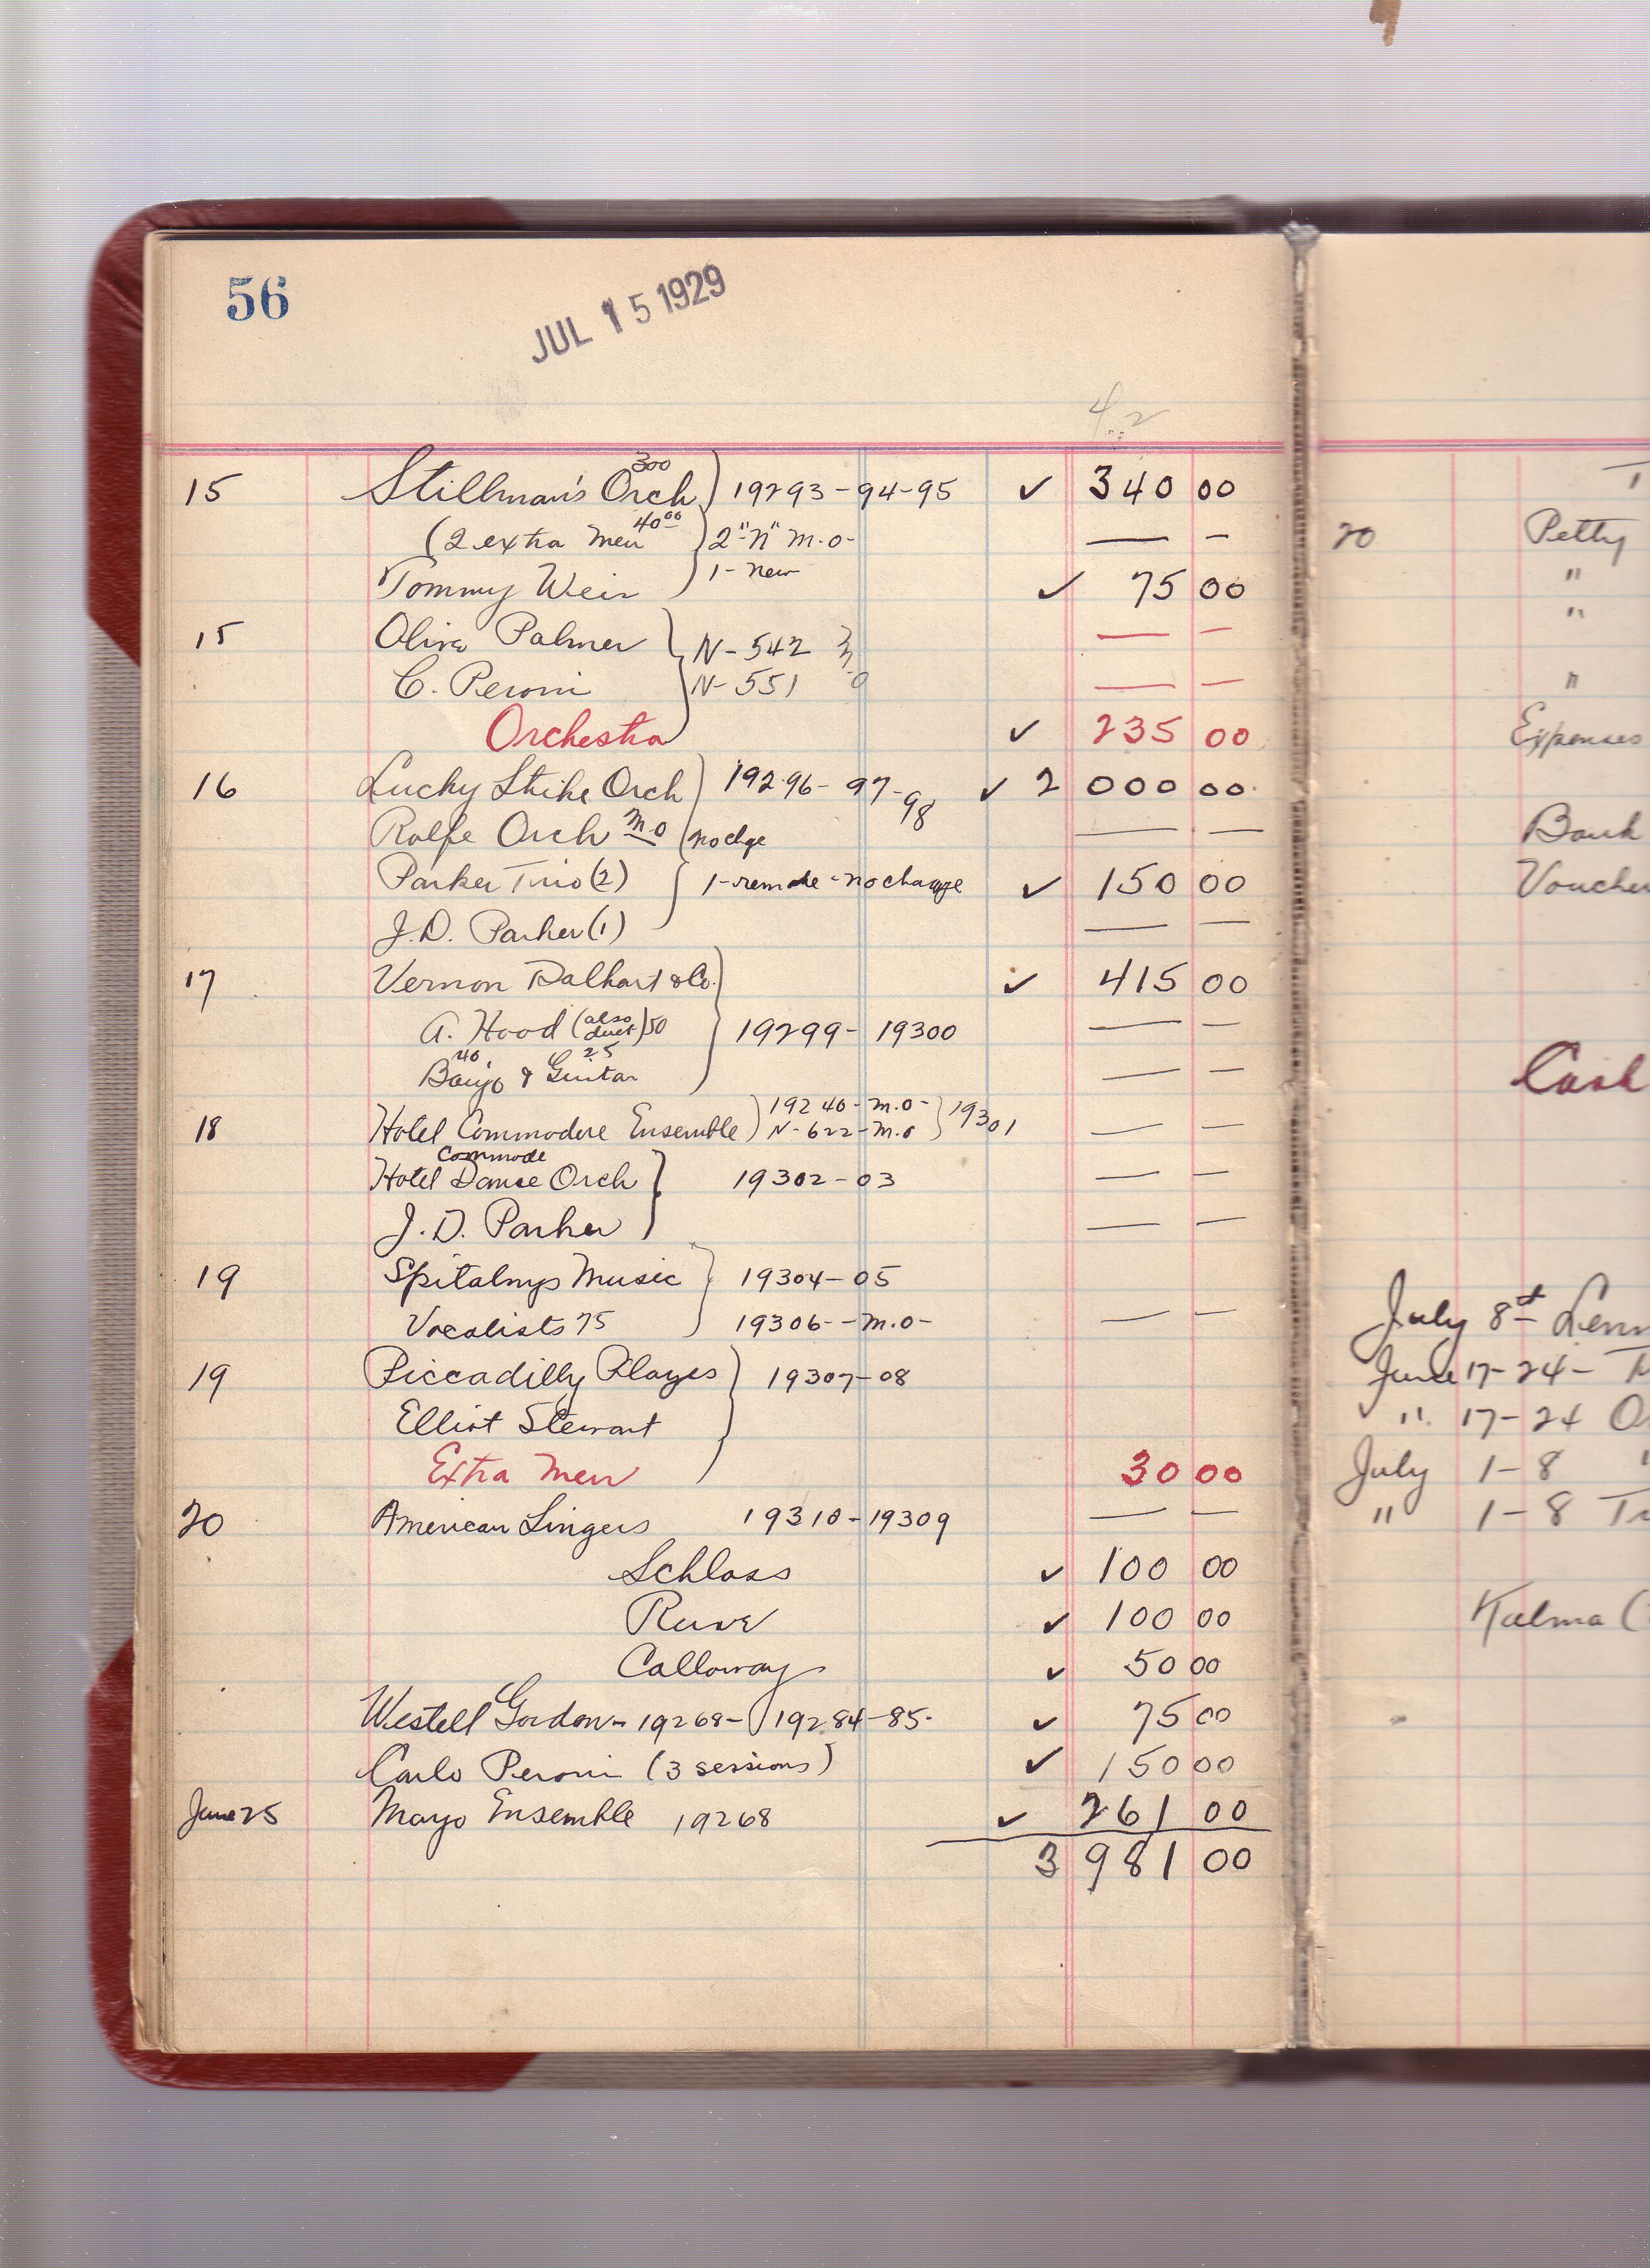 56
JUL 15 1929
4.2
15 Stillman's Orch 300 19293-94-95 ✓ 340 00
(2 extra men 40 00 2 "N" m.o- — —
Tommy Weir 1- new ✓ 75 00
15 Olive Palmer N-542 — —
C. Peroni N-551 — —
Orchestra ✓ 235 00
16 Lucky Strike Orch 19296-97-98 ✓ 2 000 00
Rolfe Orch m.o no chge — —
Parker Trio (2) 1-remake-no charge ✓ 150 00
J.D. Parker (1) — —
17 Vernon Dalhart & Co. ✓ 415 00
A. Hood (also duet) 50 19299-19300 — —
40 25
Banjo & Guitar — —
18 Hotel Commodore Ensemble 19240-m.o- N-622-m.o 19301 — —
Commode
Hotel Danse Orch 19302-03 — —
J.D. Parker — —
19 Spitalnys Music 19304-05
Vocalists 75 19306--m.o- — —
19 Piccadilly Players 19307-08
Elliot Stewart
Extra Men 30 00
20 American Singers 19310-19309 — —
Schloss ✓ 100 00
✓ 100 00
Calloway ✓ 50 00
Westell Gordon- 19268-19284-85- ✓ 75 00
Carlo Peroni (3 sessions) ✓ 150 00
June 25 Mayo Ensemble 19268 ✓ 261 00
3 981 00
20 Petty
"
"
"
Expenses
Bank
Voucher
Cash
July 8
June 17-24-
" 17-24
July 1-8
" 1-8
Kalma (